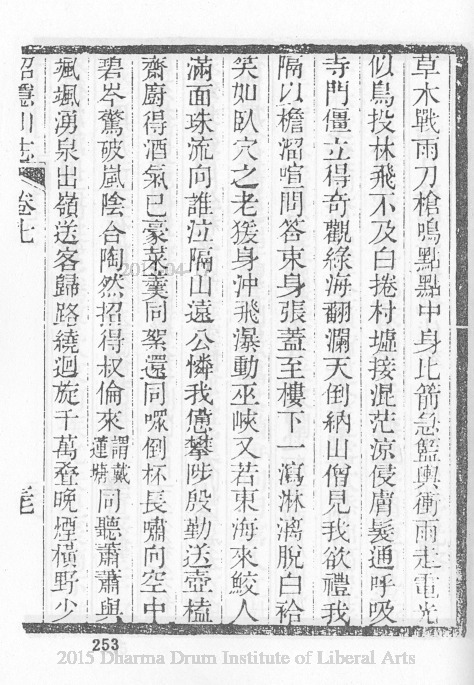 草木戰雨刀槍鳴點點中身比箭急籃輿衝雨走電光
似鳥投林飛不及白捲村墟接混茫涼侵膚髮通呼吸
寺門僵立得奇觀綠海翻瀾天倒納山僧見我欲禮我
隔以檐溜喧問答束身張蓋至樓下一瀉淋漓脫白袷
笑如臥穴之老猨身沖飛瀑動巫峽又若東海來鮫人
滿面珠流向誰泣隔山遠公憐我憊攀陟殷勤送壺榼
齋廚得酒氣已豪菜羹同絮還同啜倒杯長嘯向空中
碧岑驚破嵐陰合陶然招得叔倫來謂戴蓮塘同聽蕭蕭與
颯颯湧泉出嶺送客歸路繞迴旋千萬叠晚煙橫野少
招隱山志 卷七
253
2015 Dharma Drum Institute of Liberal Arts